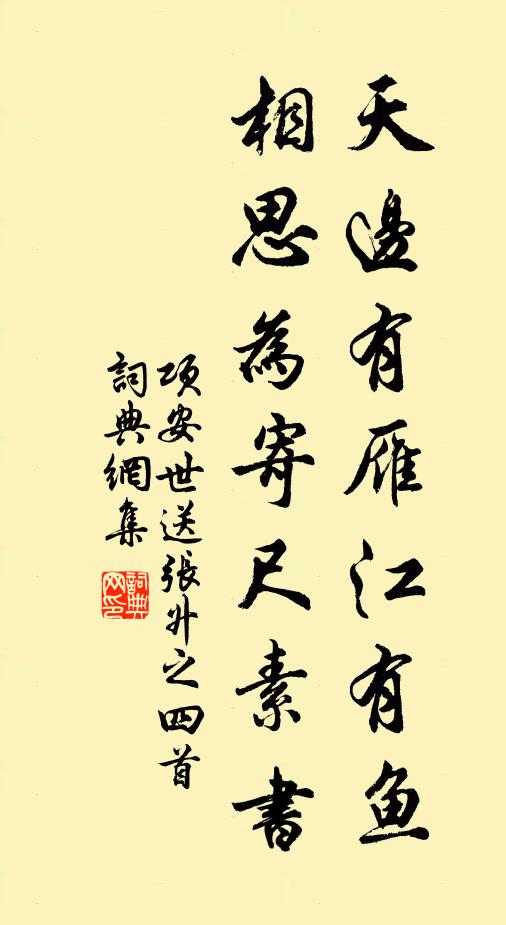 天邊有雁江有魚
相思為寄尺素書
項安世送張升之四首
詞典網集
詞典網印